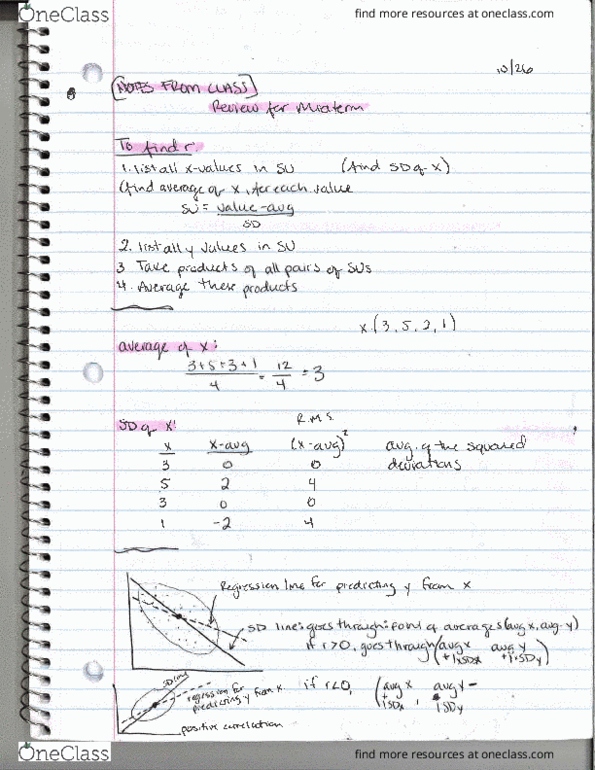 OneClass
find more resources at oneclass.com
10/26
[NOTES FROM CLASS]
Review for Midterm
To find r
1. list all x-values in SU (find SD of x)
(find average of x, for each value
SU = value-avg
SD
2. list all y values in SU
3 Take products of all pairs of SUs
4. Average these products
x (3, 5, 2, 1)
average of x:
3+5+3+1 = 12 = 3
4 4
R.M.S
SD of X:
x x-avg (x-avg)² avg. of the squared
3 0 0 deviations
5 2 4
3 0 0
1 -2 4
Regression line for predicting y from x
SD line: goes through: point of averages (avg x, avg-y)
if r>0, goes through (avg x avg y
+1xSDx +1·SDy)
SD line
regression for
predicting y from x.
if r<0, (avg x, avg y -
+ 1SDx 1SDy
positive correlation
OneClass
find more resources at oneclass.com